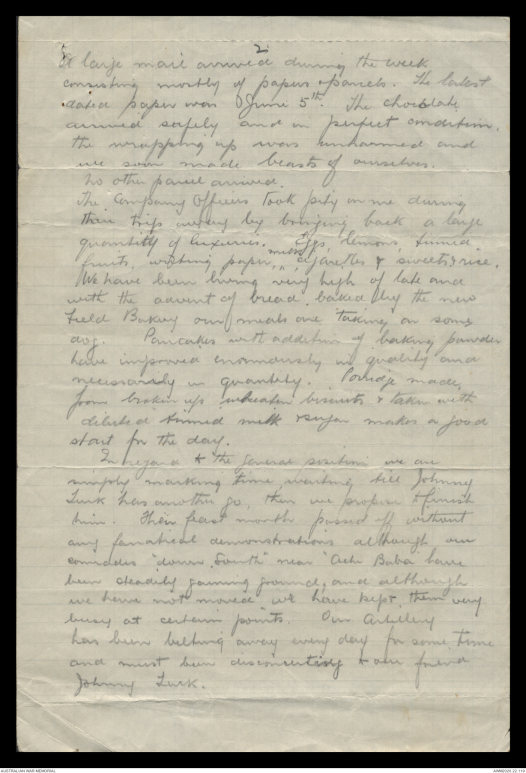 2.
A large mail arrived during the week
consisting mostly of papers & parcels. The latest
dated paper was June 5th. The chocolate
arrived safely and in perfect condition,
the wrapping up was unharmed and
we soon made beasts of ourselves.
No other parcel arrived.
The Company Officers took pity on me during
their trips away by bringing back a large
quantity of luxuries. Eggs, lemons, tinned
fruits, writing paper, milk, cigarettes & sweets, & rice.
We have been living very high of late and
with the advent of bread, baked by the new
Field Bakery our meals are taking on some
dog. Pancakes with addition of baking powder
have improved enormously in quality and
necessarily in quantity. Porridge made,
from broken up wheaten biscuits & taken with
diluted tinned milk & sugar makes a good
start for the day.
In regard to the general position we are
simply marking time, waiting till Johnny
Turk has another go, then we propose to finish
him. Their feast month passed off without
any fanatical demonstrations although our
comrades "down South" near Achi Baba have
been steadily gaining ground, and although
we have not moved we have kept them very
busy at certain points. Our Artillery
has been belting away every day for some time
and must been disconcerting to our friend
Johnny Turk.
AUSTRALIAN WAR MEMORIAL